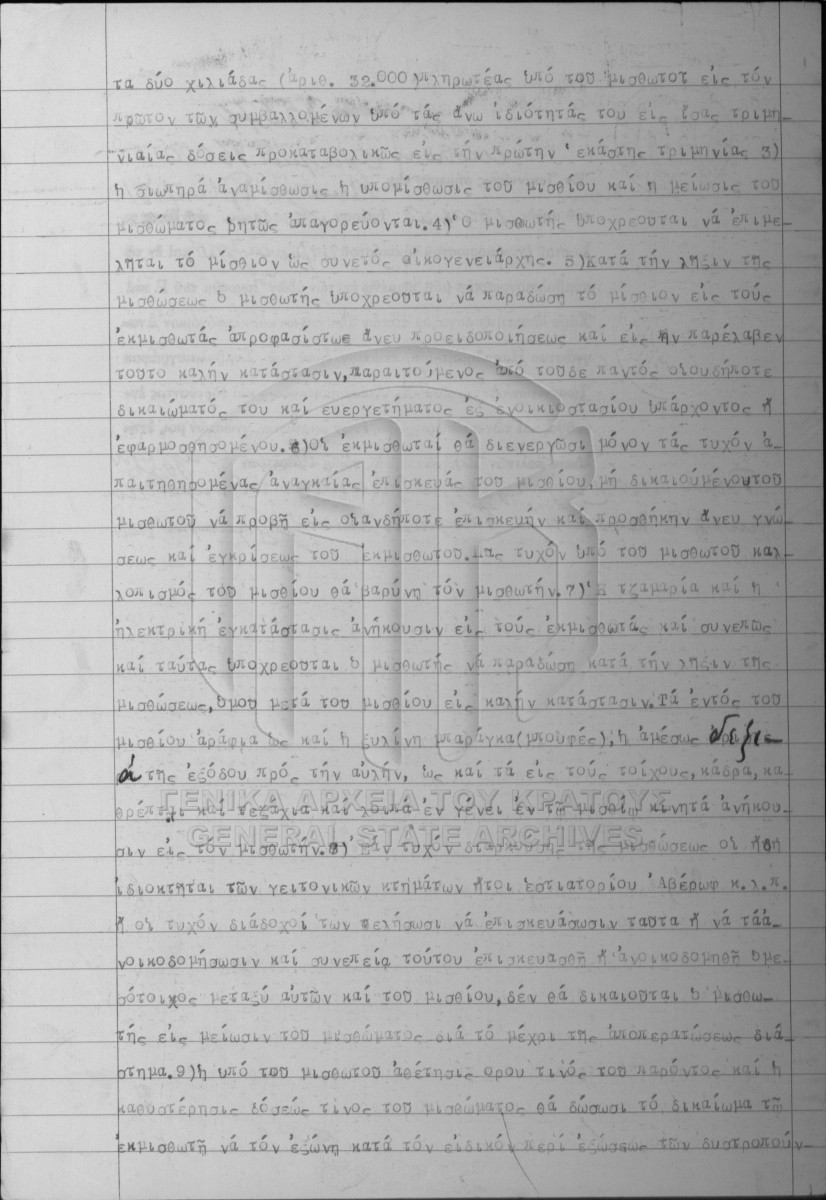 τα δύο χιλιάδας (ἀριθ. 32.000)πληρωτέας ὑπό του μισθωτοτ εἰς τόν
πρῶτον τῶν συμβαλλομένων ὑπό τάς ἄνω ἰδιότητάς του εἰς ἴσας τριμη-
νιαίας δόσεις προκαταβολικῶς εἰς τήν πρώτην ἑκάστης τριμηνίας 3)
ἡ σιωπηρά ἀναμίσθωσις ἡ υπομίσθωσις του μισθίου καί η μείωσις του
μισθώματος ῥητῶς ἀπαγορεύονται.4)Ὁ μισθωτής ὑποχρεουται νά ἐπιμε-
ληται τό μίσθιον ὡς συνετός οἰκογενειάρχης. 5)Κατά τήν λῆξιν της
μισθώσεως ὁ μισθωτής ὑποχρεουται νά παραδώση τό μίσθιον εἰς τούς
ἐκμισθωτάς ἀπροφασίστως ἄνευ προειδοποιήσεως καί εἰς ἥν παρέλαβεν
τουτο καλήν κατάστασιν,παραιτούμενος ἀπό τουδε παντός οἱουδήποτε
δικαιώματός του καί ευεργετήματος ἐξ ἐνοικιοστασίου ὑπάρχοντος ἤ
ἐφαρμοσθησομένου.6)Οἱ ἐκμισθωταί θά διενεργῶσι μόνον τάς τυχόν ἀ-
παιτηθησομένας ἀναγκαίας ἐπισκευάς του μισθίου,μή δικαιουμένουτου
μισθωτοῦ νά προβῆ εἰς οἱανδήποτε ἐπισκευήν καί προσθήκην ἄνευ γνώ-
σεως καί ἐγκρίσεως του ἐκμισθωτου. τυχόν ὑπό του μισθωτοῦ καλ-
λοπισμός του μισθίου θά βαρύνη τόν μισθωτήν.7)Ἡ τζαμαρία καί ἡ
ἠλεκτρική ἐγκατάστασις ἀνήκουσιν εἰς τούς ἐκμισθωτάς καί συνεπῶς
καί ταύτας ὑποχρεουται ὁ μισθωτής νά παραδώση κατά τήν λῆξιν της
μισθώσεως,ὁμου μετά του μισθίου εἰς καλήν κατάστασιν.Τά ἐντός του
μισθίου ἀράφια ὡς καί ἡ ξυλίνη μπαράγκα(μπουφές),ἡ ἀμέσως δεξι-
ά της ἐξόδου πρός τήν αὐλήν, ὡς καί τά εἰς τούς τοίχους,κάδρα,κα-
θρέπται καί τεζάχια καί λοιπά ἐν γένει ἐν τῶ μισθίω κινητά ἀνήκου-
ΓΕΝΙΚΑ ΑΡΧΕΙΑ ΤΟΥ ΚΡΑΤΟΥΣ
GENERAL STATE ARCHIVES
σιν εἰς τόν μισθωτήν.8)Ἐάν τυχόν διαρκούσης της μισθώσεως οἱ ἤδη
ἰδιοκτηται τῶν γειτονικῶν κτημάτων ἤτοι ἑστιατορίου Ἀβέρωφ κ.λ.π.
ἤ οἱ τυχόν διάδοχοί των θελήσωσι νά ἐπισκευάσωσιν ταυτα ἤ νά τάἀ-
νοικοδομήσωσιν καί συνεπεία τούτου ἐπισκευασθῆ ἤ ἀνοικοδομηθῆ ὁμε-
σότοιχος μεταξύ αὐτῶν καί του μισθίου,δέν θά δικαιουται ὁ μισθω-
τής εἰς μείωσιν του μισθώματος διά τό μέχρι της ἀποπερατώσεως διά-
στημα.9)ἡ υπό του μισθωτοῦ ἀθέτησις ορου τινός του παρόντος καί ἡ
καθυστέρησις δόσεώς τινος του μισθώματος θά δώσωσι τό δικαίωμα τῶ
ἐκμισθωτῆ νά τόν ἐξώνη κατά τόν εἰδικόν περί ἐξώσεως τῶν δυστροπούν-